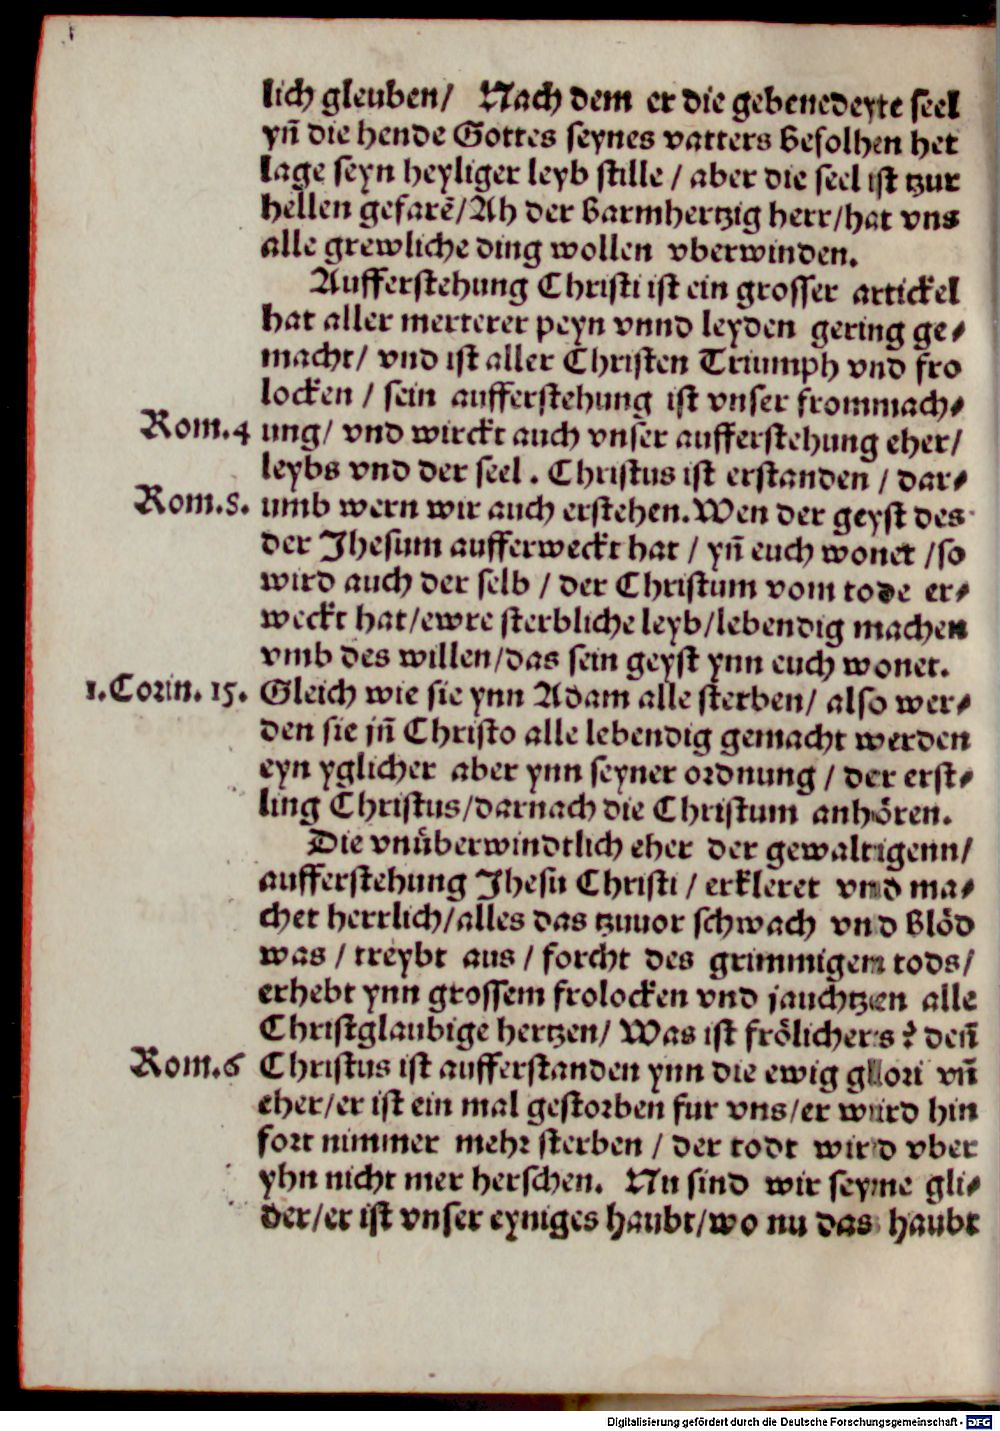 lich gleuben/ Nach dem er die gebenedeyte seel
yn̄ die hende Gottes seynes vatters befolhen het
lage seyn heyliger leyb stille / aber die seel ist tzur
hellen gefarē/Ah der barmhertzig herr/hat vns
alle grewliche ding wollen vberwinden.
Aufferstehung Christi ist ein grosser artickel
hat aller merterer peyn vnnd leyden gering ge⸗
macht/ vnd ist aller Christen Triumph vnd fro
locken / sein aufferstehung ist vnser frommach⸗
Rom.4 ung/ vnd wirckt auch vnser aufferstehung eher/
leybs vnd der seel . Christus ist erstanden / dar⸗
Rom.5. umb wern wir auch erstehen.Wen der geyst des
der Jhesum aufferweckt hat / yn̄ euch wonet /so
wird auch der selb / der Christum vom tode er⸗
weckt hat/ewre sterbliche leyb/lebendig machen
vmb des willen/das sein geyst ynn euch wonet.
1.Corin. 15. Gleich wie sie ynn Adam alle sterben/ also wer⸗
den sie jn̄ Christo alle lebendig gemacht werden
eyn yglicher aber ynn seyner ordnung / der erst⸗
ling Christus/darnach die Christum anhören.
Die vnüberwindtlich eher der gewaltigenn/
aufferstehung Jhesu Christi / erkleret vnd ma⸗
chet herrlich/alles das tzuuor schwach vnd blöd
was / treybt aus / forcht des grimmigem tods/
erhebt ynn grossem frolocken vnd jauchtzen alle
Christglaubige hertzen/ Was ist frölichers ? den̄
Rom.6 Christus ist aufferstanden ynn die ewig glori vn̄
eher/er ist ein mal gestorben fur vns/er wird hin
fort nimmer mehr sterben / der todt wird vber
yhn nicht mer herschen. Nu sind wir seyne gli⸗
der/er ist vnser eyniges haubt/wo nu das haubt
Digitalisierung gefördert durch die Deutsche Forschungsgemeinschaft - DFG